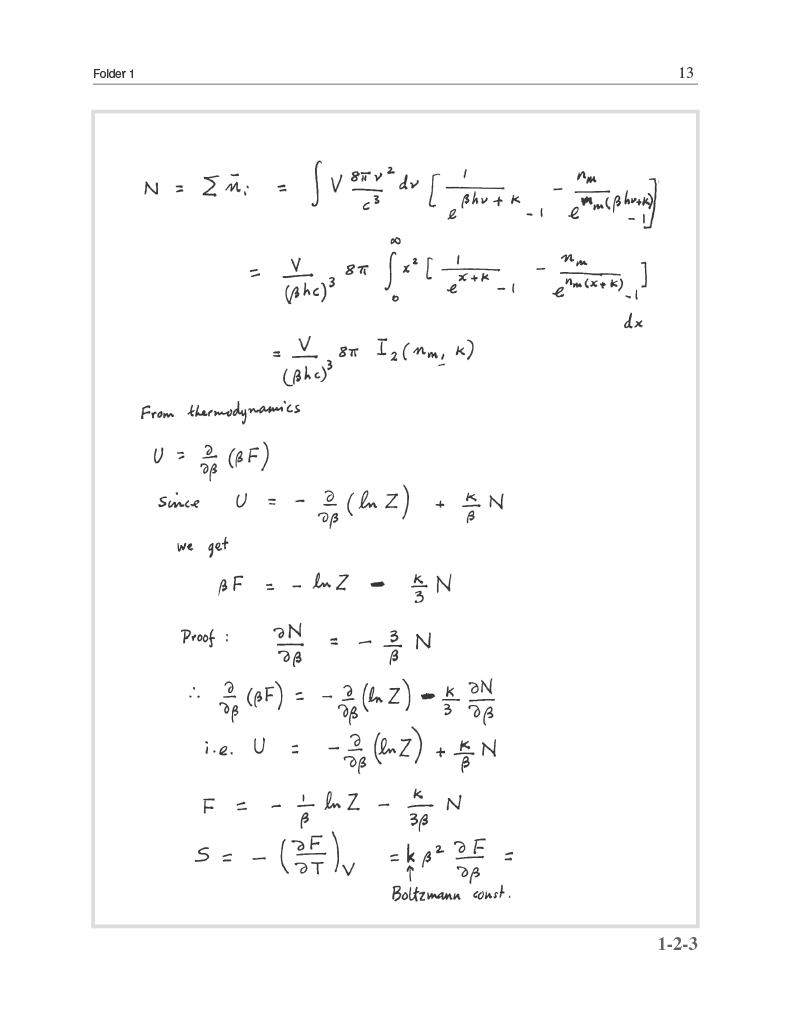 Folder 1 13
N = Σ n̄ᵢ = ∫ V 8πν²/c³ dν [ 1/(e^(βhν + κ) - 1) - n_m/(e^(n_m(βhν+κ)) - 1) ]
= V/(βhc)³ 8π ∫₀^∞ x² [ 1/(e^(x+κ) - 1) - n_m/(e^(n_m(x+κ)) - 1) ]
dx
= V/(βhc)³ 8π I₂(n_m, κ)
From thermodynamics
U = ∂/∂β (βF)
since U = - ∂/∂β (ln Z) + κ/β N
we get
βF = - ln Z - κ/3 N
Proof : ∂N/∂β = - 3/β N
∴ ∂/∂β (βF) = - ∂/∂β (ln Z) - κ/3 ∂N/∂β
i.e. U = - ∂/∂β (ln Z) + κ/β N
F = - 1/β ln Z - κ/3β N
S = - (∂F/∂T)_V = k β² ∂F/∂β =
↑
Boltzmann const.
1-2-3